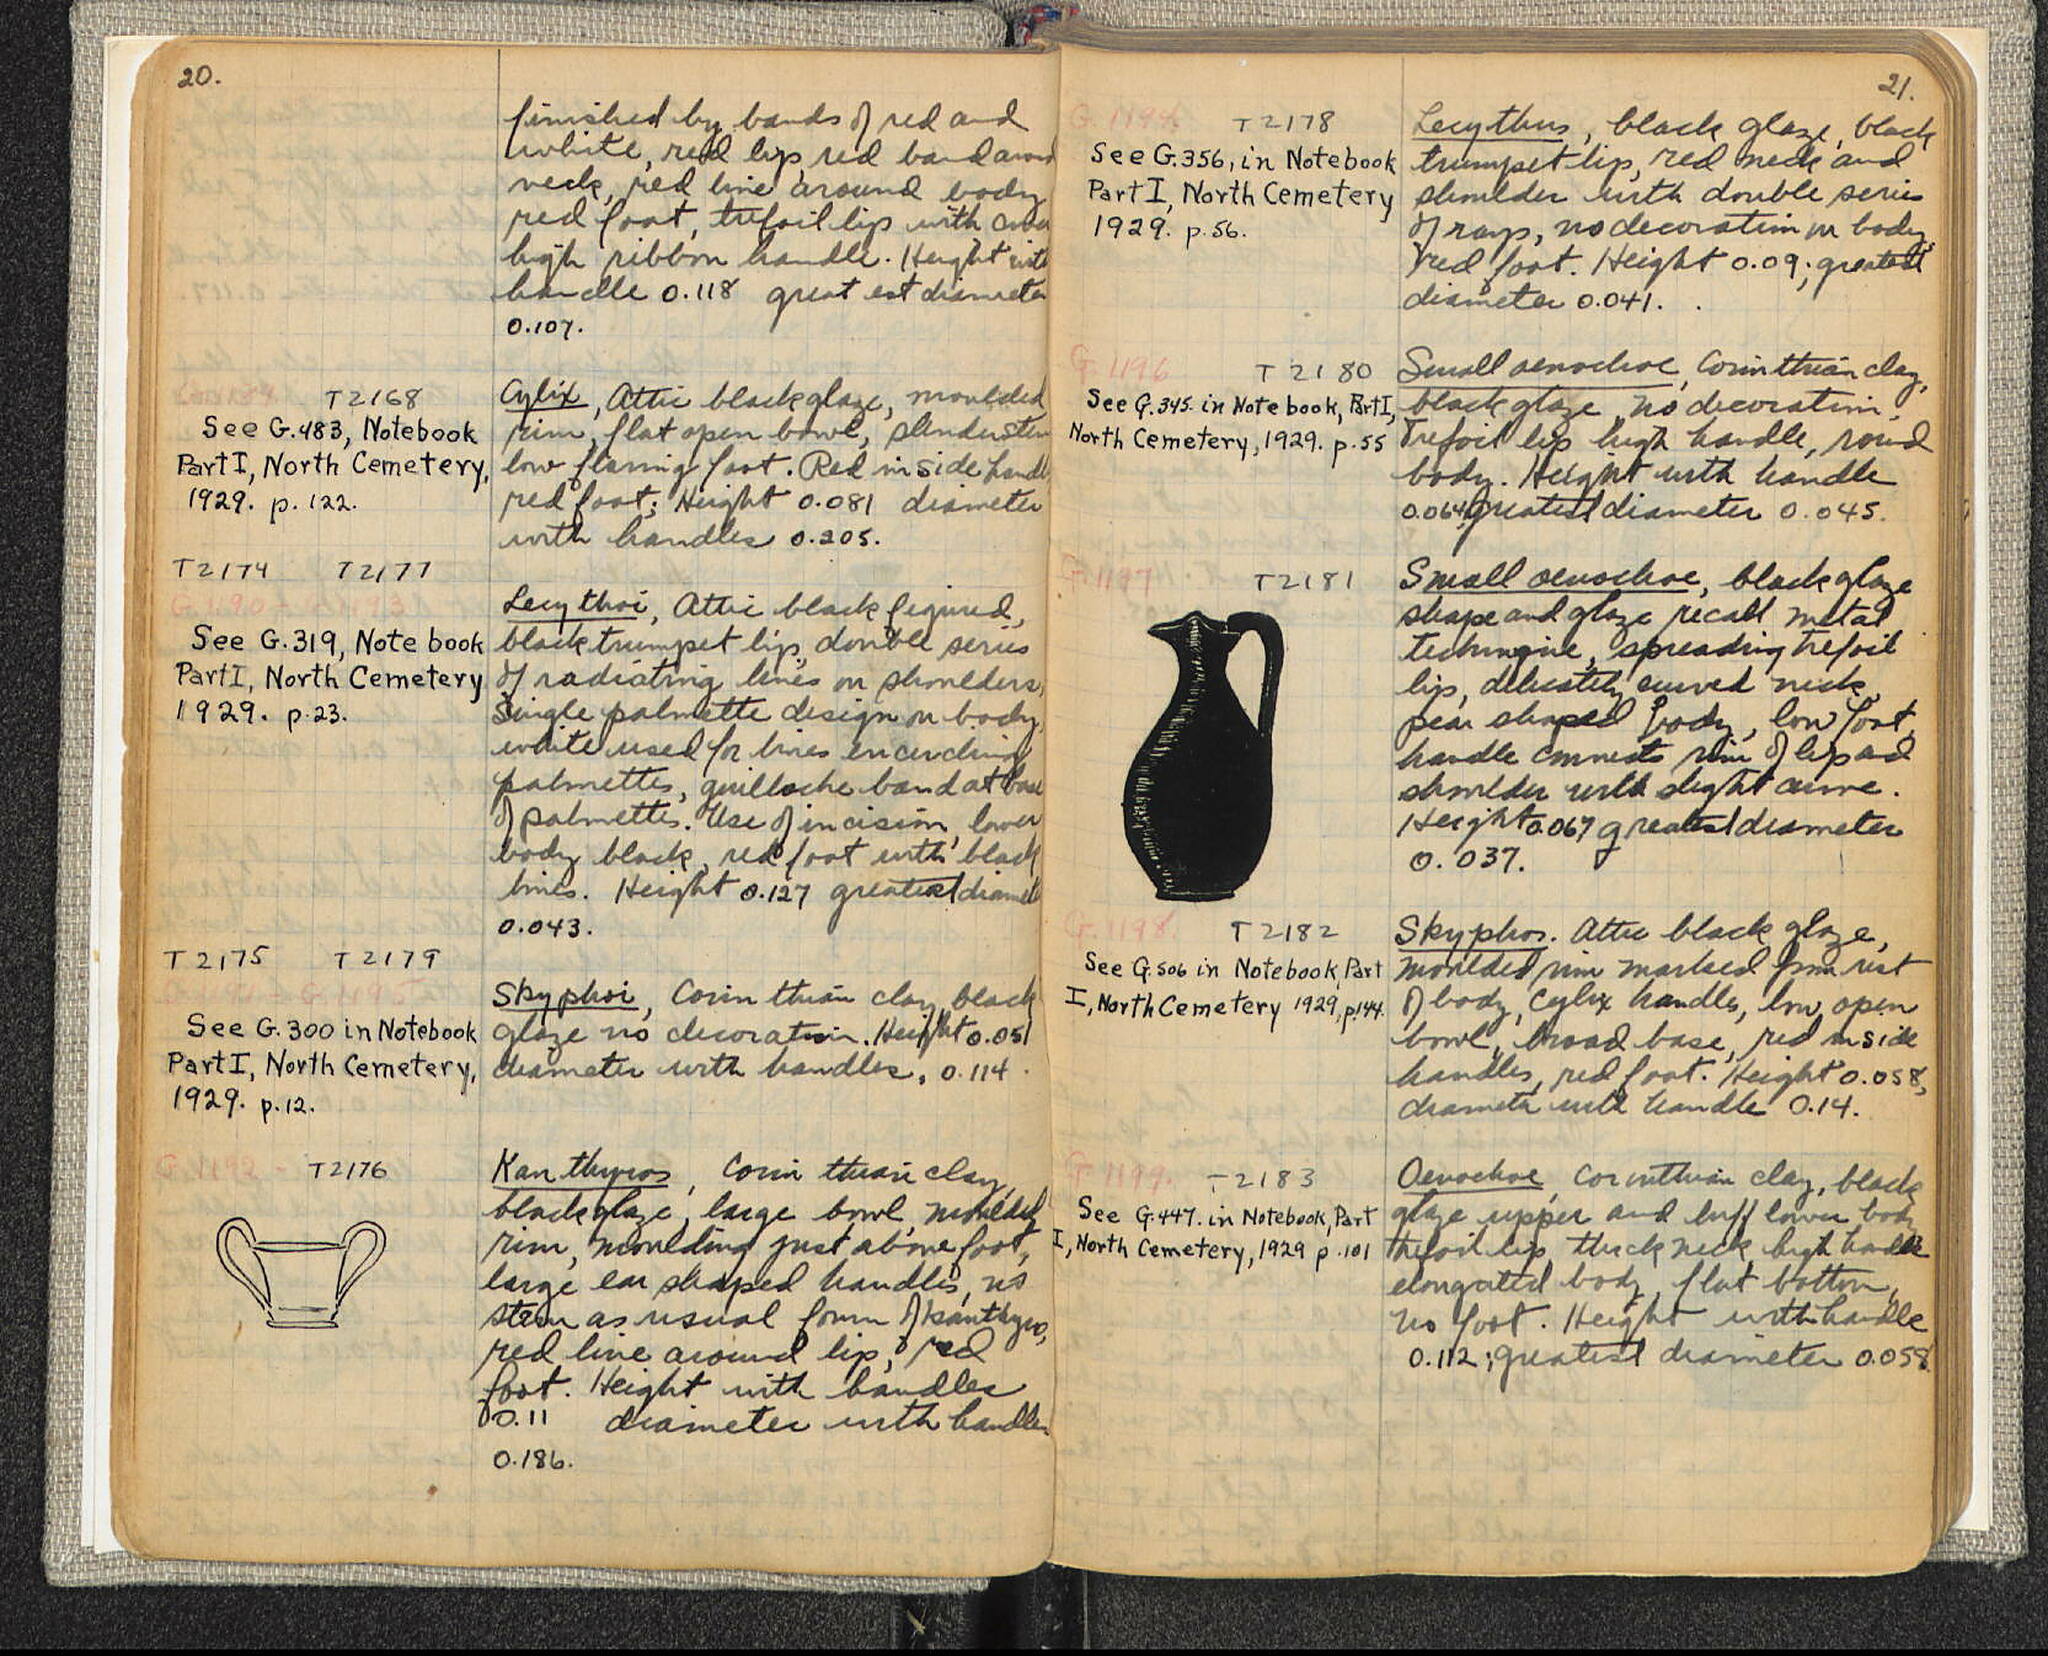 20.
finished by bands of red and
white, red lip, red band around
neck, red line around body
red foot, trefoil lip with
high ribbon handle. Height with
handle 0.118 greatest diameter
0.107.
T2168
See G.483, Notebook
Part I, North Cemetery,
1929. p. 122.
Cylix, Attic black glaze, moulded
rim, flat open bowl, slender stem
low flaring foot. Red inside handles
red foot; Height 0.081 diameter
with handles 0.205.
T2174 T2177
G.1190 - G.1193
See G.319, Note book
Part I, North Cemetery
1929. p.23.
Lecythoi, Attic black figured,
black trumpet lip, double series
of radiating lines on shoulders,
Single palmette design on body,
white used for lines encircling
palmettes, guilloche band at base
of palmettes. Use of incision, lower
body black, red foot with black
lines. Height 0.127 greatest diameter
0.043.
T2175 T2179
G.1191 - G.1195
See G.300 in Notebook
Part I, North Cemetery,
1929. p.12.
Skyphoi, Corinthian clay, black
glaze no decoration. Height 0.051
diameter with handles, 0.114.
G.1192 - T2176
Kantharos, Corinthian clay,
black glaze, large bowl, moulded
rim, moulding just above foot,
large ear shaped handles, no
stem as usual form of kantharos,
red line around lip, red
foot. Height with handles
0.11 diameter with handles
0.186.
21.
T2178
See G.356, in Notebook
Part I, North Cemetery
1929. p.56.
Lecythus, black glaze, black
trumpet lip, red neck and
shoulder with double series
of rays, no decoration on body,
red foot. Height 0.09; greatest
diameter 0.041.
G.1196 T2180
See G.345. in Notebook, Part I,
North Cemetery, 1929. p.55
Small oenochoe, Corinthian clay,
black glaze, no decoration.
Trefoil lip high handle, round
body. Height with handle
0.064, greatest diameter 0.045.
G.1197 T2181
Small oenochoe, black glaze
shape and glaze recall metal
technique, spreading trefoil
lip, delicately curved neck,
pear shaped body, low foot,
handle connects rim of lip and
shoulder with slight curve.
Height 0.067 greatest diameter
0.037.
G.1198. T2182
See G.506 in Notebook, Part
I, North Cemetery 1929, p.144.
Skyphos. Attic black glaze,
moulded rim marked from rest
of body, Cylix handles, low, open
bowl, broad base, red inside
handles, red foot. Height 0.058,
diameter with handle 0.14.
G.1199. T2183
See G.447. in Notebook, Part
I, North Cemetery, 1929 p.101
Oenochoe, Corinthian clay, black
glaze upper and buff lower body
trefoil lip, thick neck, high handle
elongated body, flat bottom,
no foot. Height with handle
0.112; greatest diameter 0.058